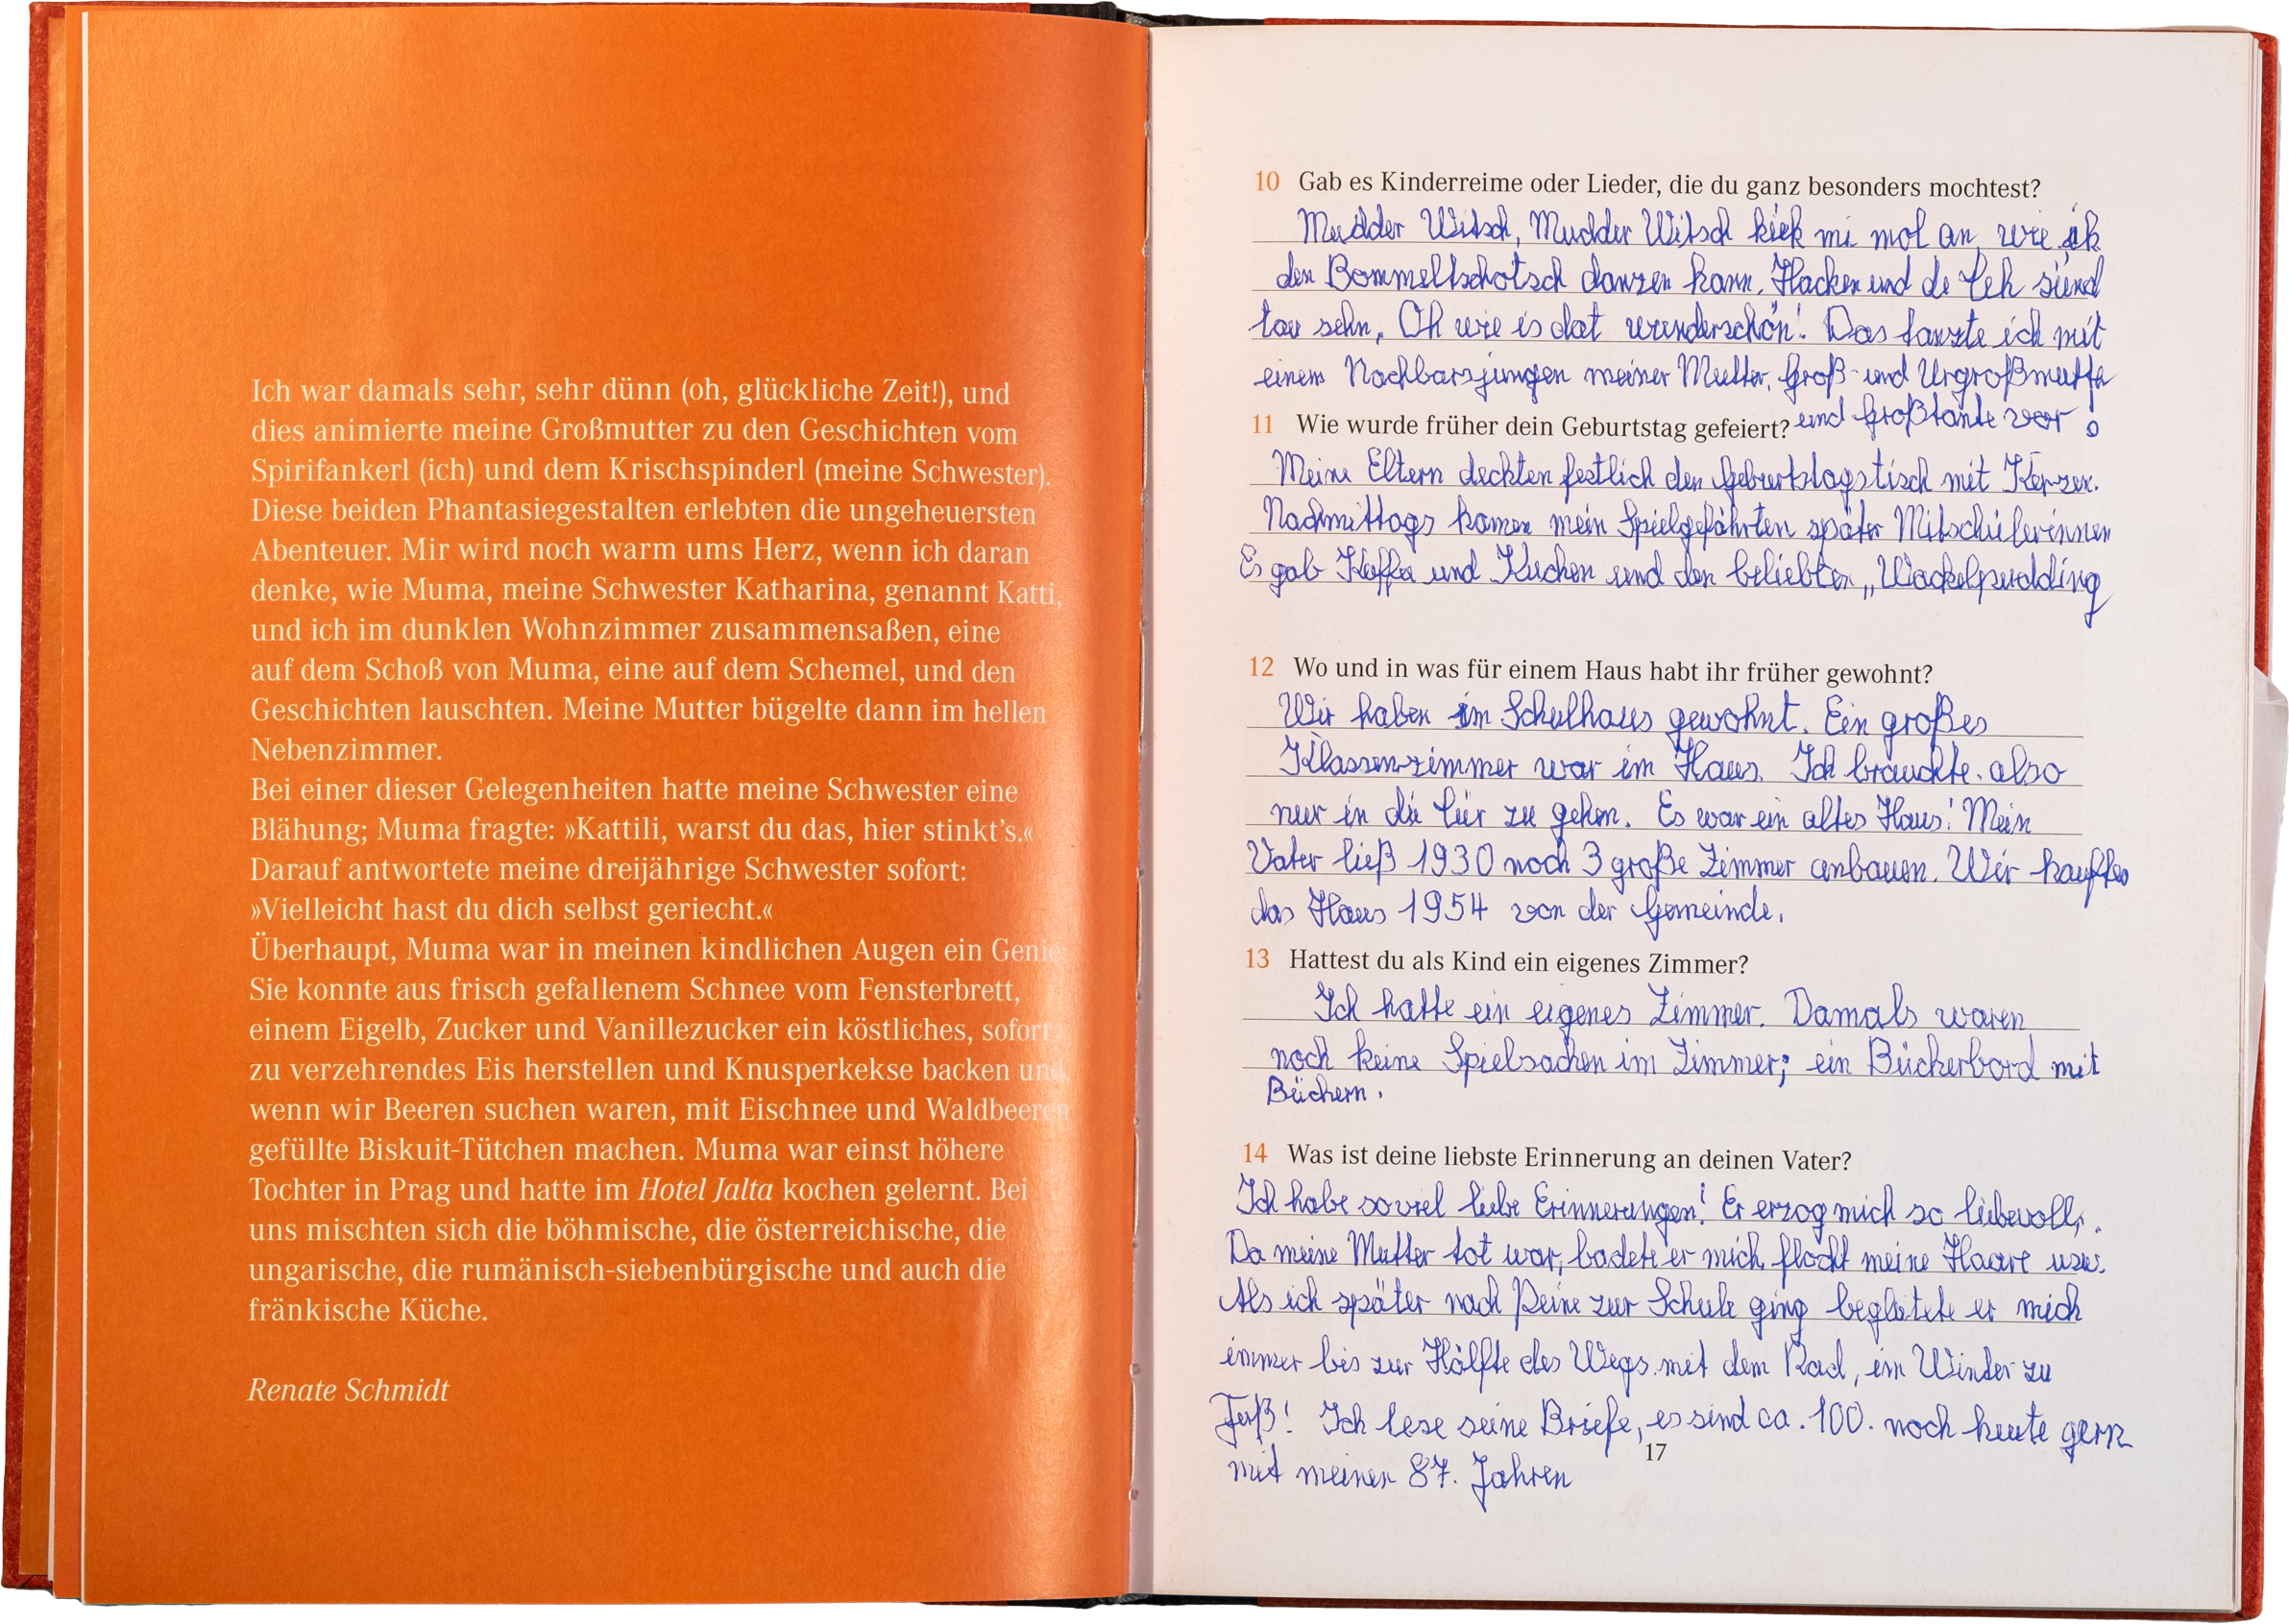 Ich war damals sehr, sehr dünn (oh, glückliche Zeit!), und
dies animierte meine Großmutter zu den Geschichten vom
Spirifankerl (ich) und dem Krischspinderl (meine Schwester).
Diese beiden Phantasiegestalten erlebten die ungeheuersten
Abenteuer. Mir wird noch warm ums Herz, wenn ich daran
denke, wie Muma, meine Schwester Katharina, genannt Katti,
und ich im dunklen Wohnzimmer zusammensaßen, eine
auf dem Schoß von Muma, eine auf dem Schemel, und den
Geschichten lauschten. Meine Mutter bügelte dann im hellen
Nebenzimmer.
Bei einer dieser Gelegenheiten hatte meine Schwester eine
Blähung; Muma fragte: »Kattili, warst du das, hier stinkt’s.«
Darauf antwortete meine dreijährige Schwester sofort:
»Vielleicht hast du dich selbst geriecht.«
Überhaupt, Muma war in meinen kindlichen Augen ein Genie:
Sie konnte aus frisch gefallenem Schnee vom Fensterbrett,
einem Eigelb, Zucker und Vanillezucker ein köstliches, sofort
zu verzehrendes Eis herstellen und Knusperkekse backen und,
wenn wir Beeren suchen waren, mit Eischnee und Waldbeeren
gefüllte Biskuit-Tütchen machen. Muma war einst höhere
Tochter in Prag und hatte im Hotel Jalta kochen gelernt. Bei
uns mischten sich die böhmische, die österreichische, die
ungarische, die rumänisch-siebenbürgische und auch die
fränkische Küche.
Renate Schmidt
10 Gab es Kinderreime oder Lieder, die du ganz besonders mochtest?
Mudder Witsch, Mudder Witsch kiek mi mol an, wie ik
den Bommelschotsch danzen kann. Hacken und de Teh sünd
tau sehn, Oh wie is dat wunderschön! Das tanzte ich mit
einem Nachbarsjungen meiner Mutter, Groß- und Urgroßmutter
und Großtante vor!
11 Wie wurde früher dein Geburtstag gefeiert?
Meine Eltern deckten festlich den Geburtstagstisch mit Kerzen.
Nachmittags kamen mein Spielgefährten später Mitschülerinnen
Es gab Kaffee und Kuchen und den beliebten „Wackelpudding
12 Wo und in was für einem Haus habt ihr früher gewohnt?
Wir haben im Schulhaus gewohnt. Ein großes
Klassenzimmer war im Haus. Ich brauchte also
nur in die Tür zu gehen. Es war ein altes Haus! Mein
Vater ließ 1930 noch 3 große Zimmer anbauen. Wir kauften
das Haus 1954 von der Gemeinde.
13 Hattest du als Kind ein eigenes Zimmer?
Ich hatte ein eigenes Zimmer. Damals waren
noch keine Spielsachen im Zimmer; ein Bücherbord mit
Büchern.
14 Was ist deine liebste Erinnerung an deinen Vater?
Ich habe soviel liebe Erinnerungen! Er erzog mich so liebevoll,.
Da meine Mutter tot war, badete er mich, flocht meine Haare usw.
Als ich später nach Peine zur Schule ging begleitete er mich
immer bis zur Hälfte des Wegs mit dem Rad, im Winder zu
Fuß! Ich lese seine Briefe, es sind ca. 100. noch heute gern
mit meinen 87. Jahren
17